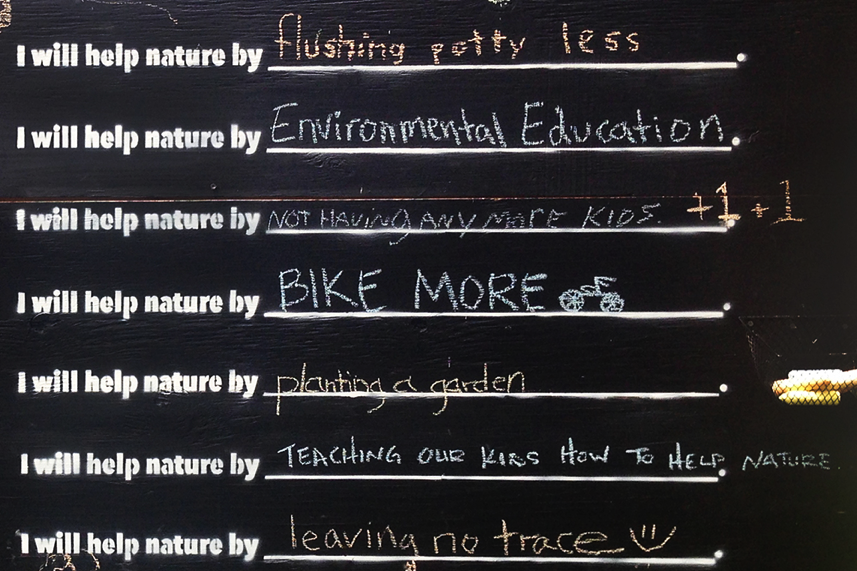 I will help nature by flushing potty less.
I will help nature by Environmental Education.
I will help nature by NOT HAVING ANY MORE KIDS. +1 +1
I will help nature by BIKE MORE.
I will help nature by planting a garden.
I will help nature by TEACHING OUR KIDS HOW TO HELP. NATURE.
I will help nature by leaving no trace.